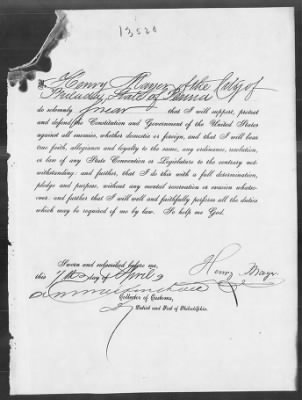 13,520
I, Henry Mayer of the City of
Philada, State of Penna
do solemnly swear that I will support, protect
and defend the Constitution and Government of the United States
against all enemies, whether domestic or foreign, and that I will bear
true faith, allegiance and loyalty to the same, any ordinance, resolution,
or law of any State Convention or Legislature to the contrary not-
withstanding: and further, that I do this with a full determination,
pledge and purpose, without any mental reservation or evasion whatso-
ever: and further that I will well and faithfully perform all the duties
which may be required of me by law. So help me God.
Sworn and subscribed before me,
this 7th day of April
Henry Mayer
Collector of Customs,
District and Port of Philadelphia.